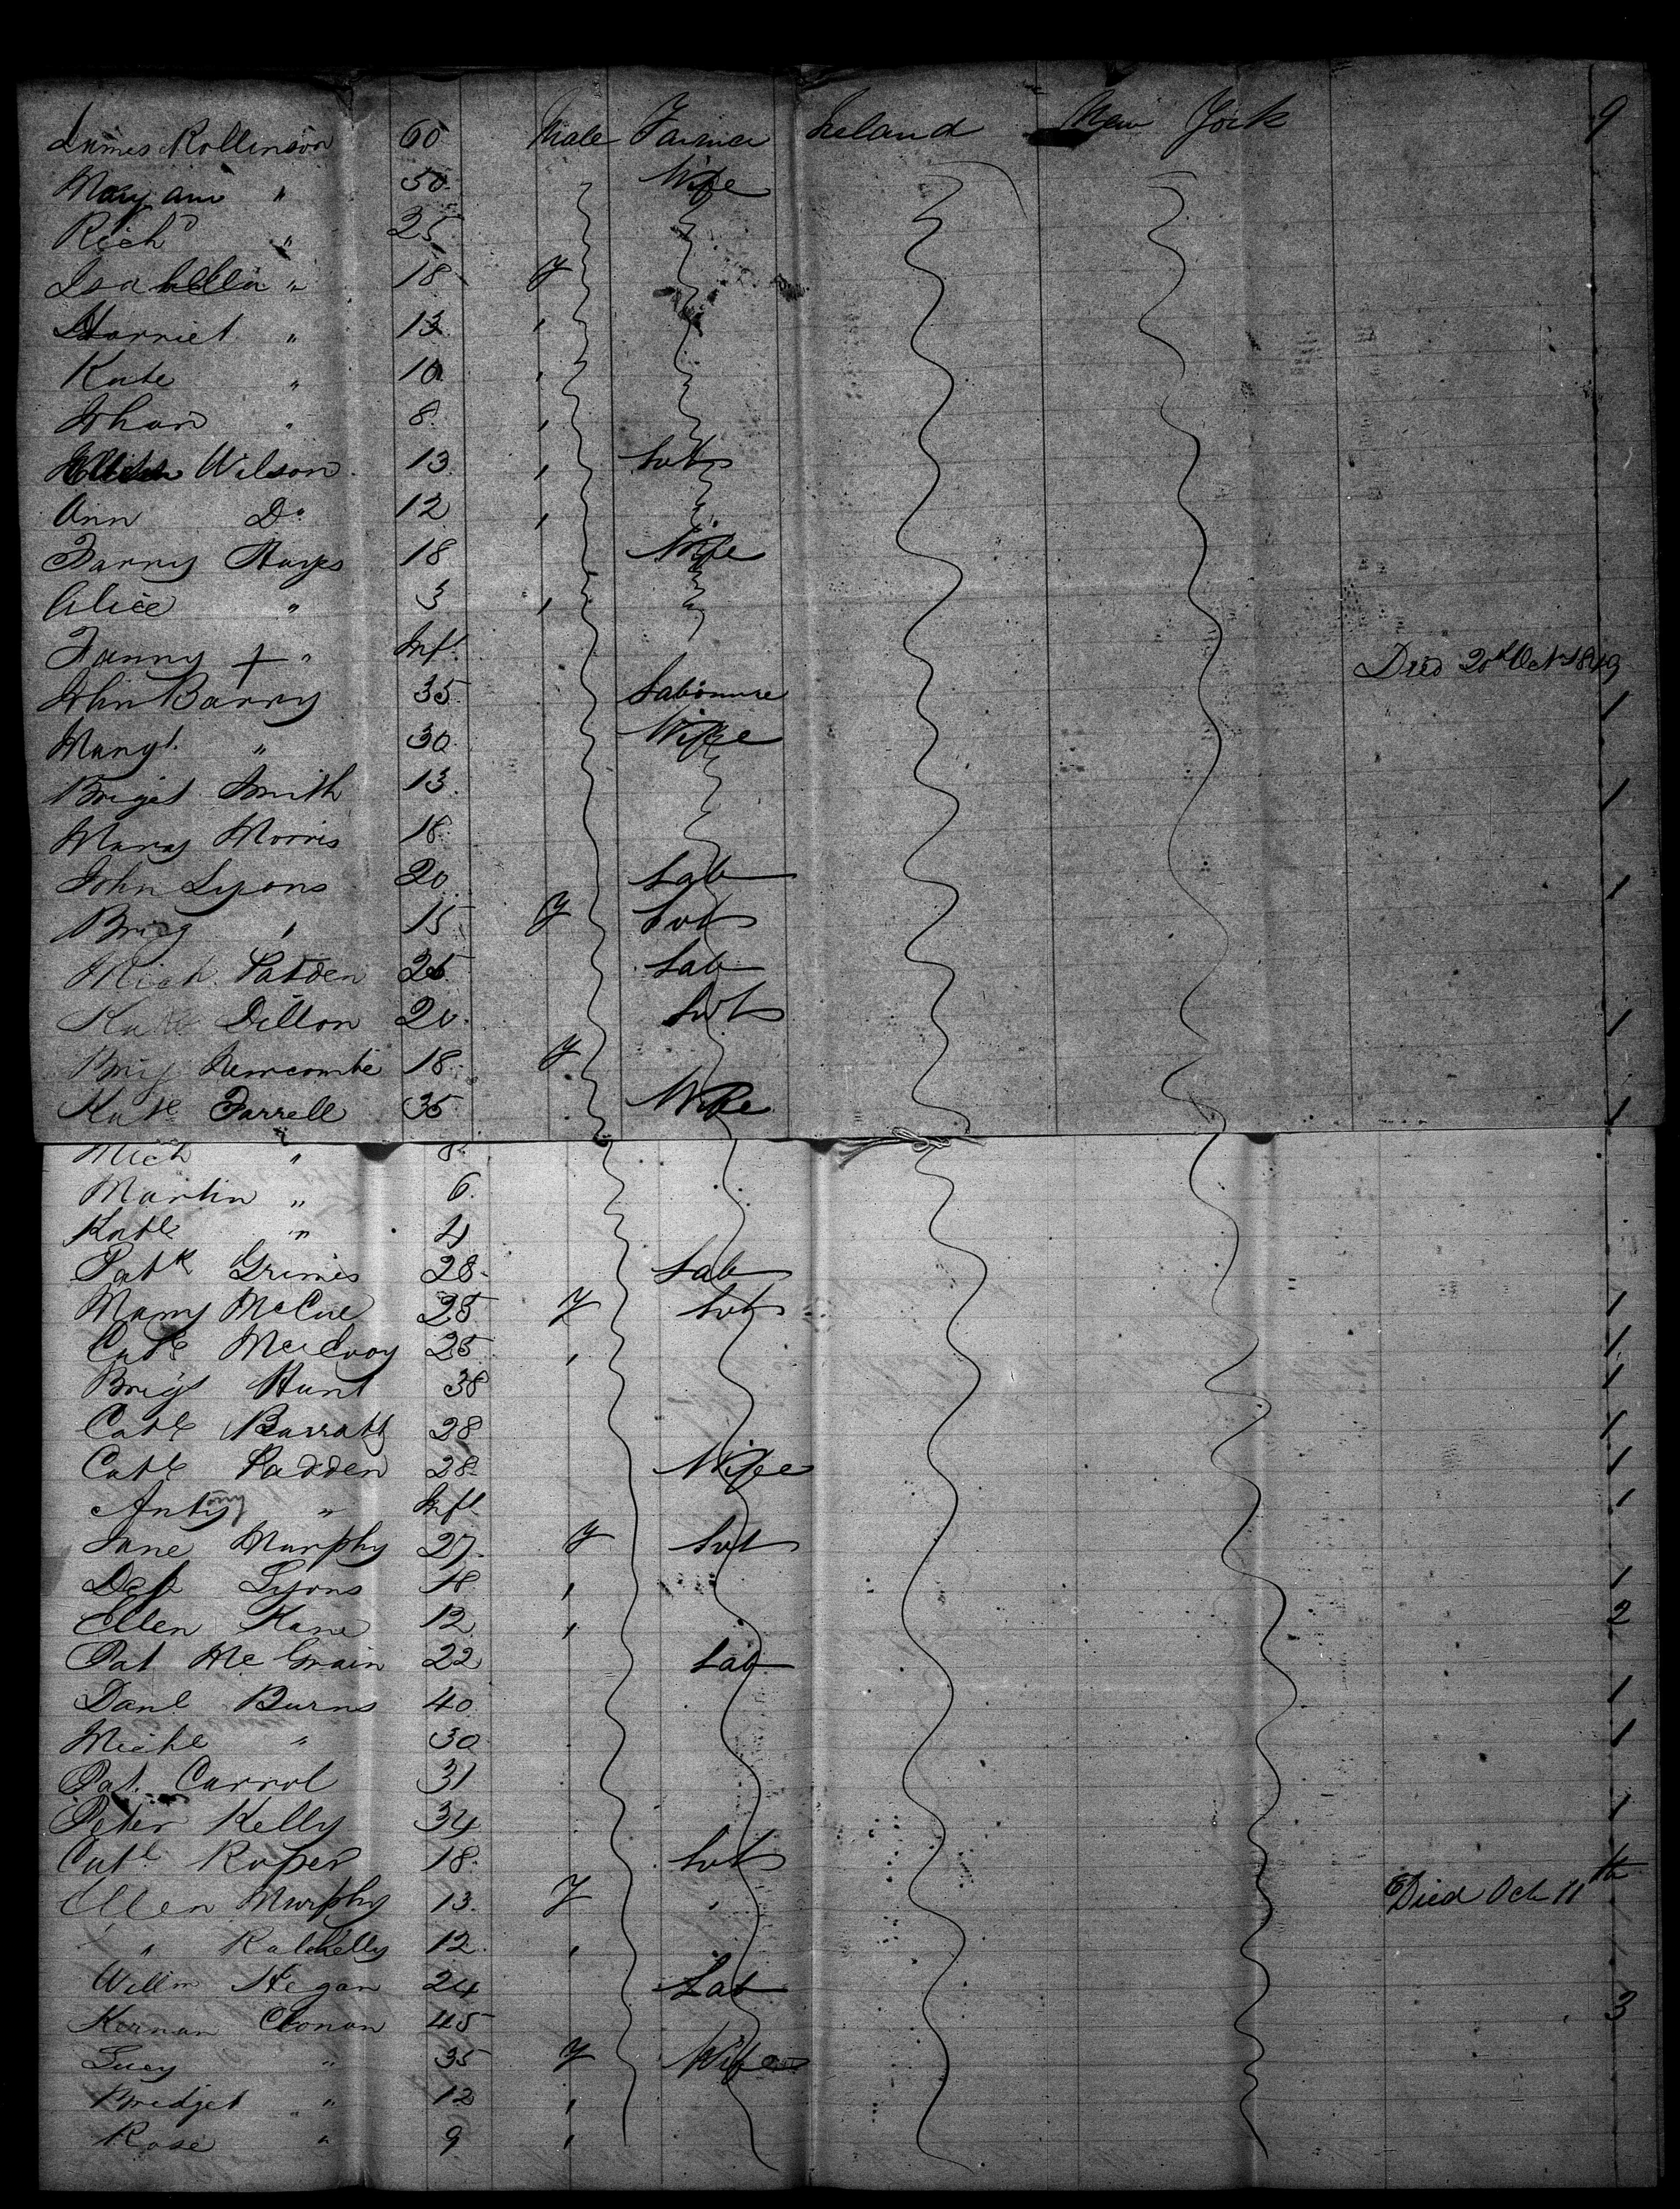 James Rollinson 60 Male Farmer Ireland New York 9
Mary ann " 50 Wife
Richd " 25
Isabella " 18 F
Harriet " 13 ,
Kate " 10 ,
Jhan " 8 ,
Wilson 13 , Svt
Ann Do 12 ,
Fanny Hayes 18 Wife
Alice " 3 ,
Fanny + " Inft Died 20th Oct 1849
John Barry 35 Labourer 1
Margt " 30 Wife
Briget Smith 13 1
Mary Morris 18
John Lyons 20 Lab 1
Brig , 15 F Svt
Mich Padden 25 Lab
Kate Dillon 20 Svt 1
Brig Newcombe 18 F
Kate Farrell 35 Wife 1
Mich " 8
Martin " 6
Kate " 4
Patk Grimes 28 Lab
Mary McCue 25 F Svt 1
Cate McEvoy 25 , 1
Brigt Hunt 38 1
Cate Barratt 28 1
Cate Padden 28 Wife 1
Antony " Inft 1
Jane Murphy 27 F Svt
Lyons 18 , 1
Ellen Kane 12 , 2
Pat McGrain 22 Lab
Danl Burns 40 1
Michl " 30 1
Pat Carrol 31
Peter Kelly 34 1
Catl Roper 18 Svt
Ellen Murphy 13 F , Died Oct 11th
" 12 ,
Willm Hegan 24 Lab
Kernan Conan 45 3
Lucy " 35 F Wife
Bridget " 12 ,
Rose " 9 ,